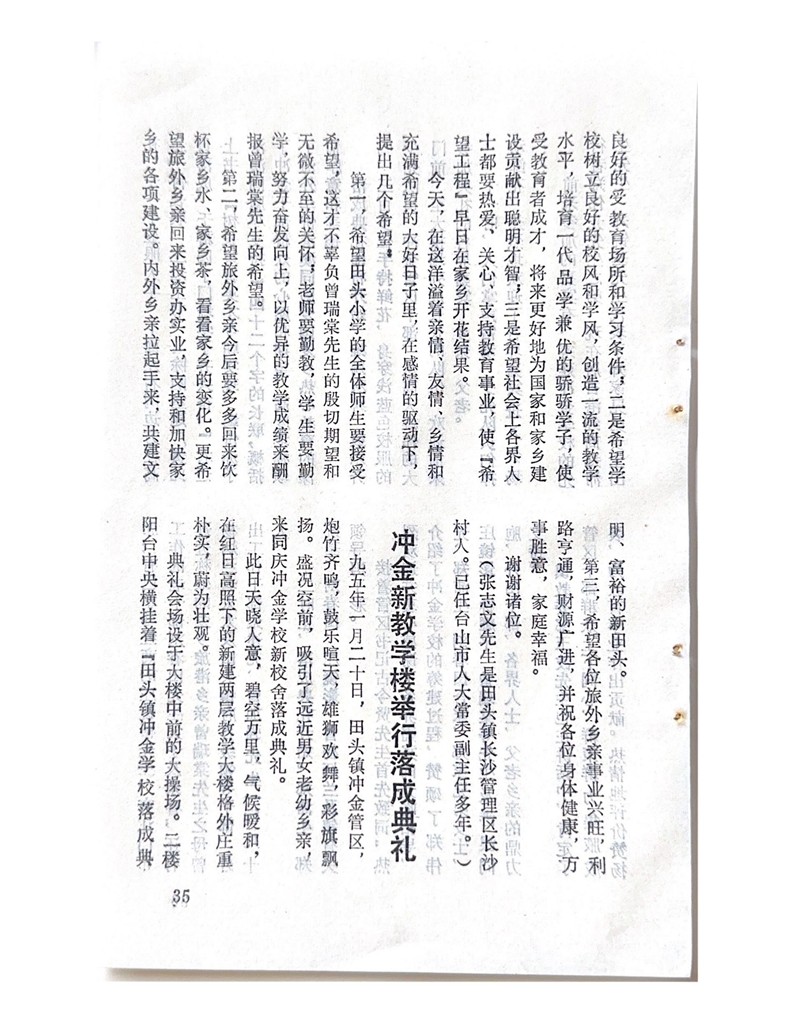 良好的受教育场所和学习条件；二是希望学
校树立良好的校风和学风，创造一流的教学
水平，培育一代品学兼优的骄骄学子，使
受教育者成才，将来更好地为国家和家乡建
设贡献出聪明才智；三是希望社会上各界人
士都要热爱、关心、支持教育事业，使『希
望工程』早日在家乡开花结果。
今天，在这洋溢着亲情、友情、乡情和
充满希望的大好日子里，在感情的驱动下，
提出几个希望：
第一，希望田头小学的全体师生要接受
希望，这才不辜负曾瑞棠先生的殷切期望和
无微不至的关怀；老师要勤教，学生要勤
学，努力奋发向上，以优异的教学成绩来酬
报曾瑞棠先生的希望。
第二，希望旅外乡亲今后要多多回来饮
杯家乡水、家乡茶，看看家乡的变化。更希
望旅外乡亲回来投资办实业，支持和加快家
乡的各项建设。内外乡亲拉起手来，共建文
明、富裕的新田头。
第三，希望各位旅外乡亲事业兴旺，利
路亨通，财源广进，并祝各位身体健康，万
事胜意，家庭幸福。
谢谢诸位。
（张志文先生是田头镇长沙管理区长沙
村人。已任台山市人大常委副主任多年。）
冲金新教学楼举行落成典礼
九五年一月二十日，田头镇冲金管区，
炮竹齐鸣，鼓乐喧天，雄狮欢舞，彩旗飘
扬。盛况空前，吸引了远近男女老幼乡亲，
来同庆冲金学校新校舍落成典礼。
此日天晓人意，碧空万里，气候暖和，
在红日高照下的新建两层教学大楼格外庄重
朴实，蔚为壮观。
典礼会场设于大楼中前的大操场。二楼
阳台中央横挂着『田头镇冲金学校落成典
35